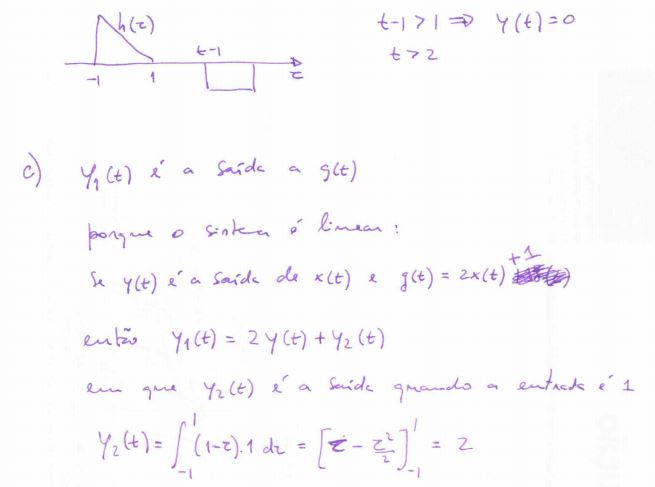 h(τ)
t-1>1 ⇒ y(t)=0
t-1
t>2
-1 1 τ
c) y₁(t) é a saída a g(t)
porque o sistema é linear:
Se y(t) é a saída de x(t) e g(t) = 2x(t) +1
então y₁(t) = 2y(t) + y₂(t)
em que y₂(t) é a saída quando a entrada é 1
y₂(t) = ∫₋₁¹ (1-τ).1 dτ = [τ - τ²/2]₋₁¹ = 2